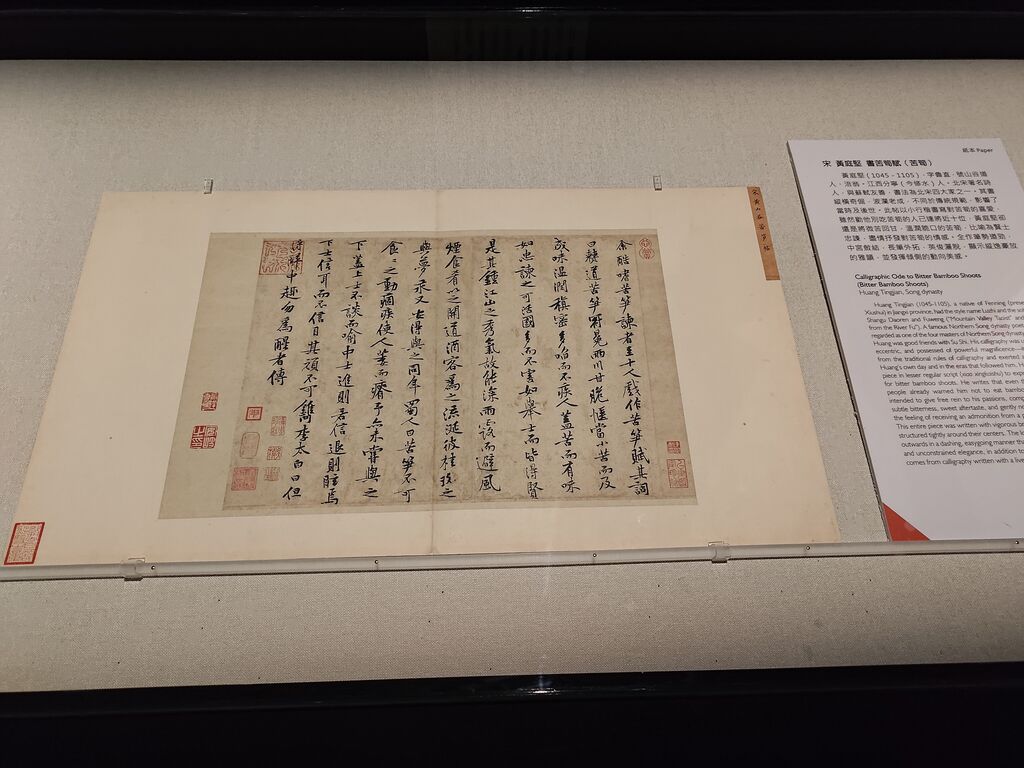 宋黃山谷苦筍帖
余酷嗜苦笋諫者至十人戲作苦笋賦其詞
曰僰道苦笋冠冕兩川甘脆愜當小苦而及
成味溫潤稹密多啗而不疾人蓋苦而有味
如忠諫之可活國多而不害如舉士而皆得賢
是其鍾江山之秀氣故能深雨露而避風
煙食肴以之開道酒客為之流涎彼桂玫之
與夢永又安得與之同年蜀人曰苦笋不可
食々之動痼疾使人萎而瘠予亦未嘗與之
下蓋上士不談而喻中士進則若信退則眩焉
下士信耳而不信目其頑不可鐫李太白曰但
得醉中趣勿為醒者傳
紙本 Paper
宋 黃庭堅 書苦筍賦（苦筍）
黃庭堅（1045-1105），字魯直，號山谷道
人、涪翁。江西分寧（今修水）人。北宋著名詩
人，與蘇軾友善，書法為北宋四大家之一。其書
縱橫奇倔，波瀾老成，不同於傳統規範，影響了
當時及後世。此帖以小行楷書寫對苦筍的喜愛，
雖然勸他別吃苦筍的人已達將近十位，黃庭堅卻
還是將微苦回甘、溫潤脆口的苦筍，比喻為賢士
忠諫，盡情抒發對苦筍的情感。全作筆勢遒勁，
中宮斂結，長筆外拓，英俊灑脫，顯示縱逸豪放
的雅韻，並發揮傾側的動向美感。
Calligraphic Ode to Bitter Bamboo Shoots
(Bitter Bamboo Shoots)
Huang Tingjian, Song dynasty
Huang Tingjian (1045-1105), a native of Fenning (pre
Xiushui) in Jiangxi province, had the style name Luzhi and the so
Shangu Daoren and Fuweng ("Mountain Valley Taoist" and
from the River Fu"). A famous Northern Song dynasty poe
regarded as one of the four masters of Northern Song dynast
Huang was good friends with Su Shi. His calligraphy was
eccentric, and possessed of powerful magnificence—
from the traditional rules of calligraphy and exerted
Huang's own day and in the eras that followed him. H
piece in lesser regular script (xiao xingkaishu) to exp
for bitter bamboo shoots. He writes that even th
people already warned him not to eat bamb
intended to give free rein to his passions, com
subtle bitterness, sweet aftertaste, and gently n
the feeling of receiving an admonition from a
This entire piece was written with vigorous br
structured tightly around their centers. The l
outwards in a dashing, easygoing manner tha
and unconstrained elegance, in addition to
comes from calligraphy written with a live